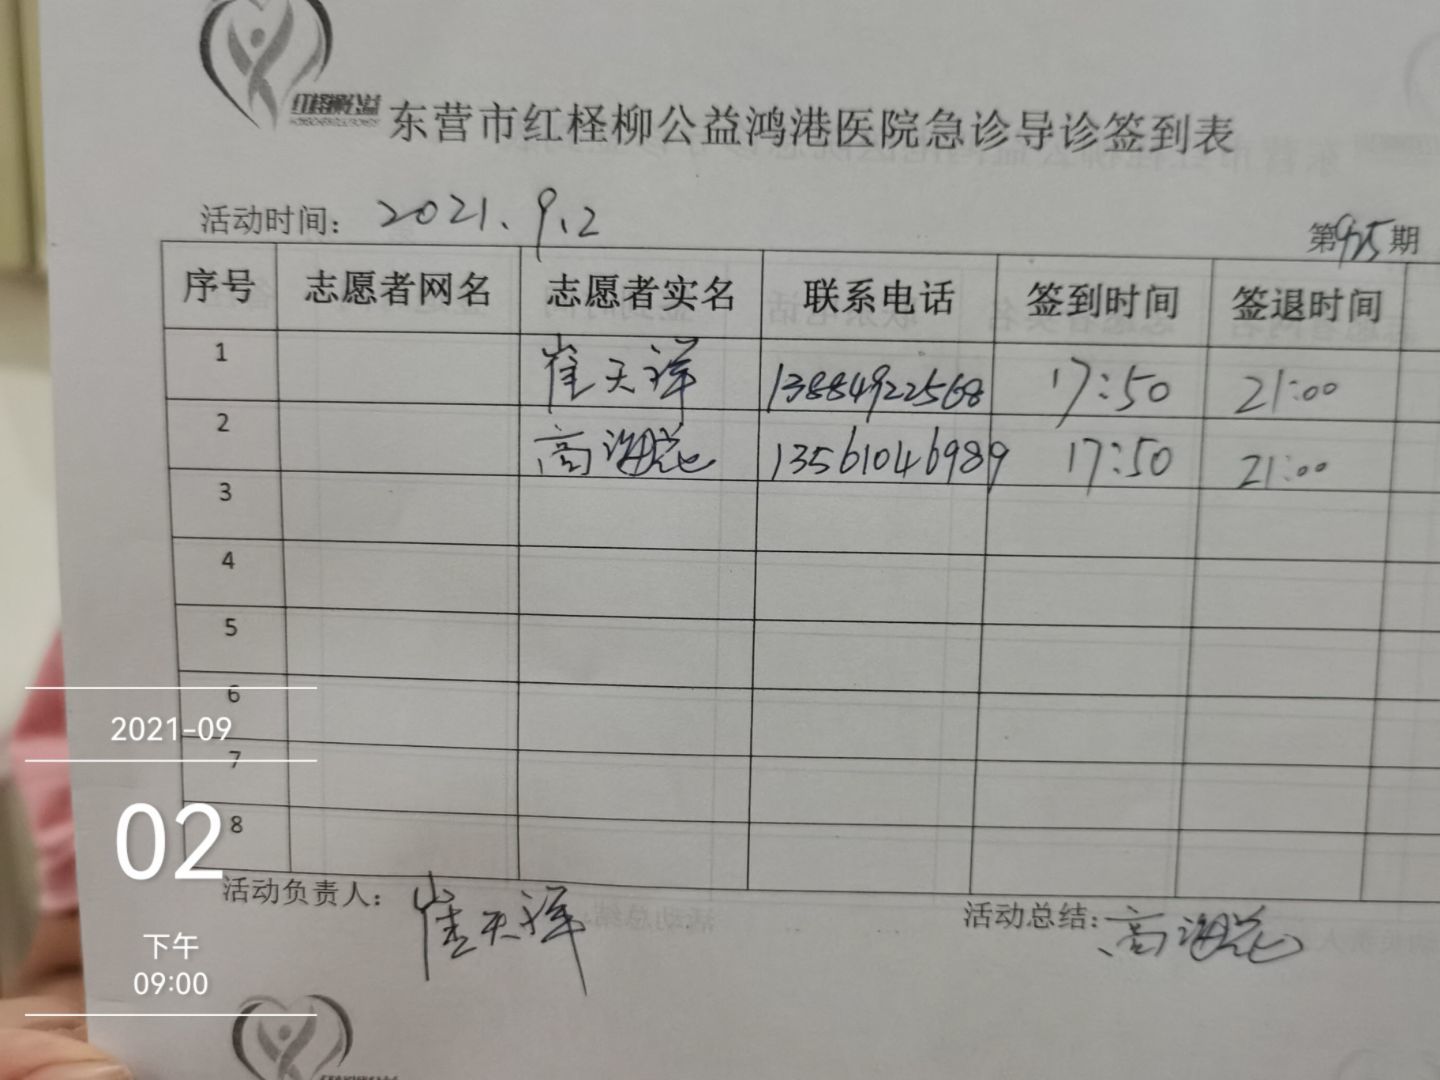 红柽柳公益
东营市红柽柳公益鸿港医院急诊导诊签到表
活动时间： 2021.9.2
第925期
序号 志愿者网名 志愿者实名 联系电话 签到时间 签退时间
1 崔天祥 13884922568 17:50 21:00
2 高海花 13561046989 17:50 21:00
3
4
5
6
2021-09
7
02
8
活动负责人： 崔天祥 活动总结: 高海花
下午
09:00